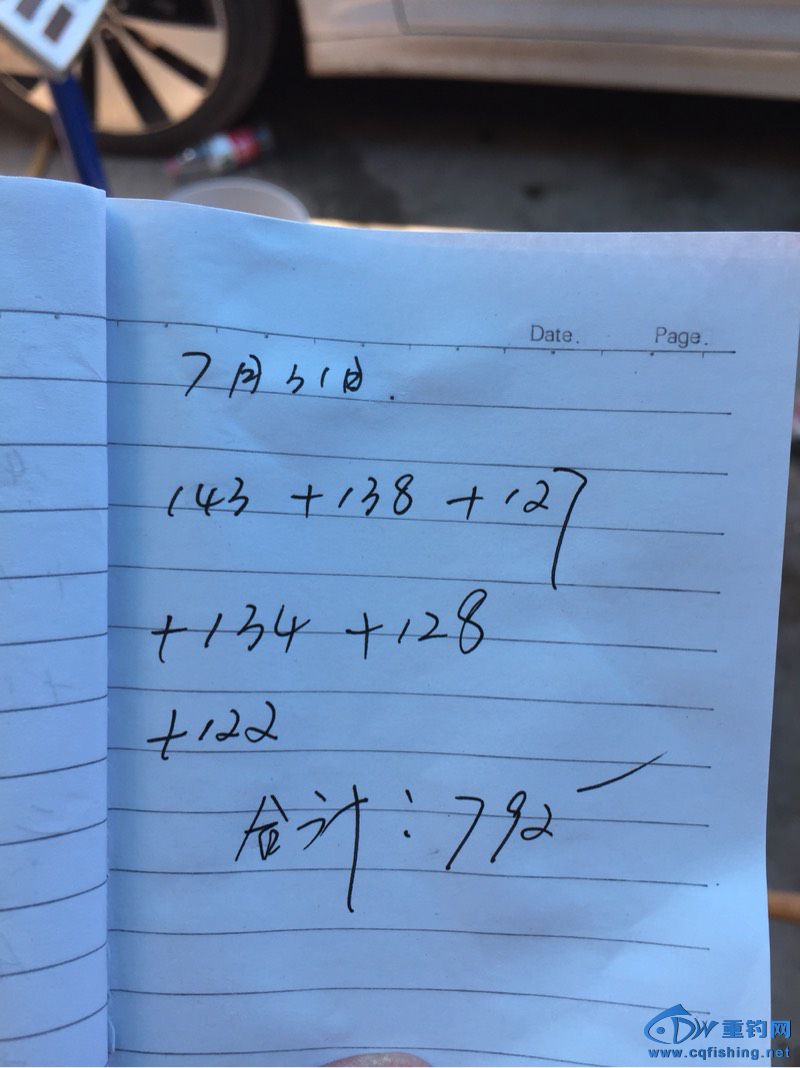 Date. Page.
7月31日.
143 +138 +127
+134 +128
+122
合计:792
重钓网
www.cqfishing.net